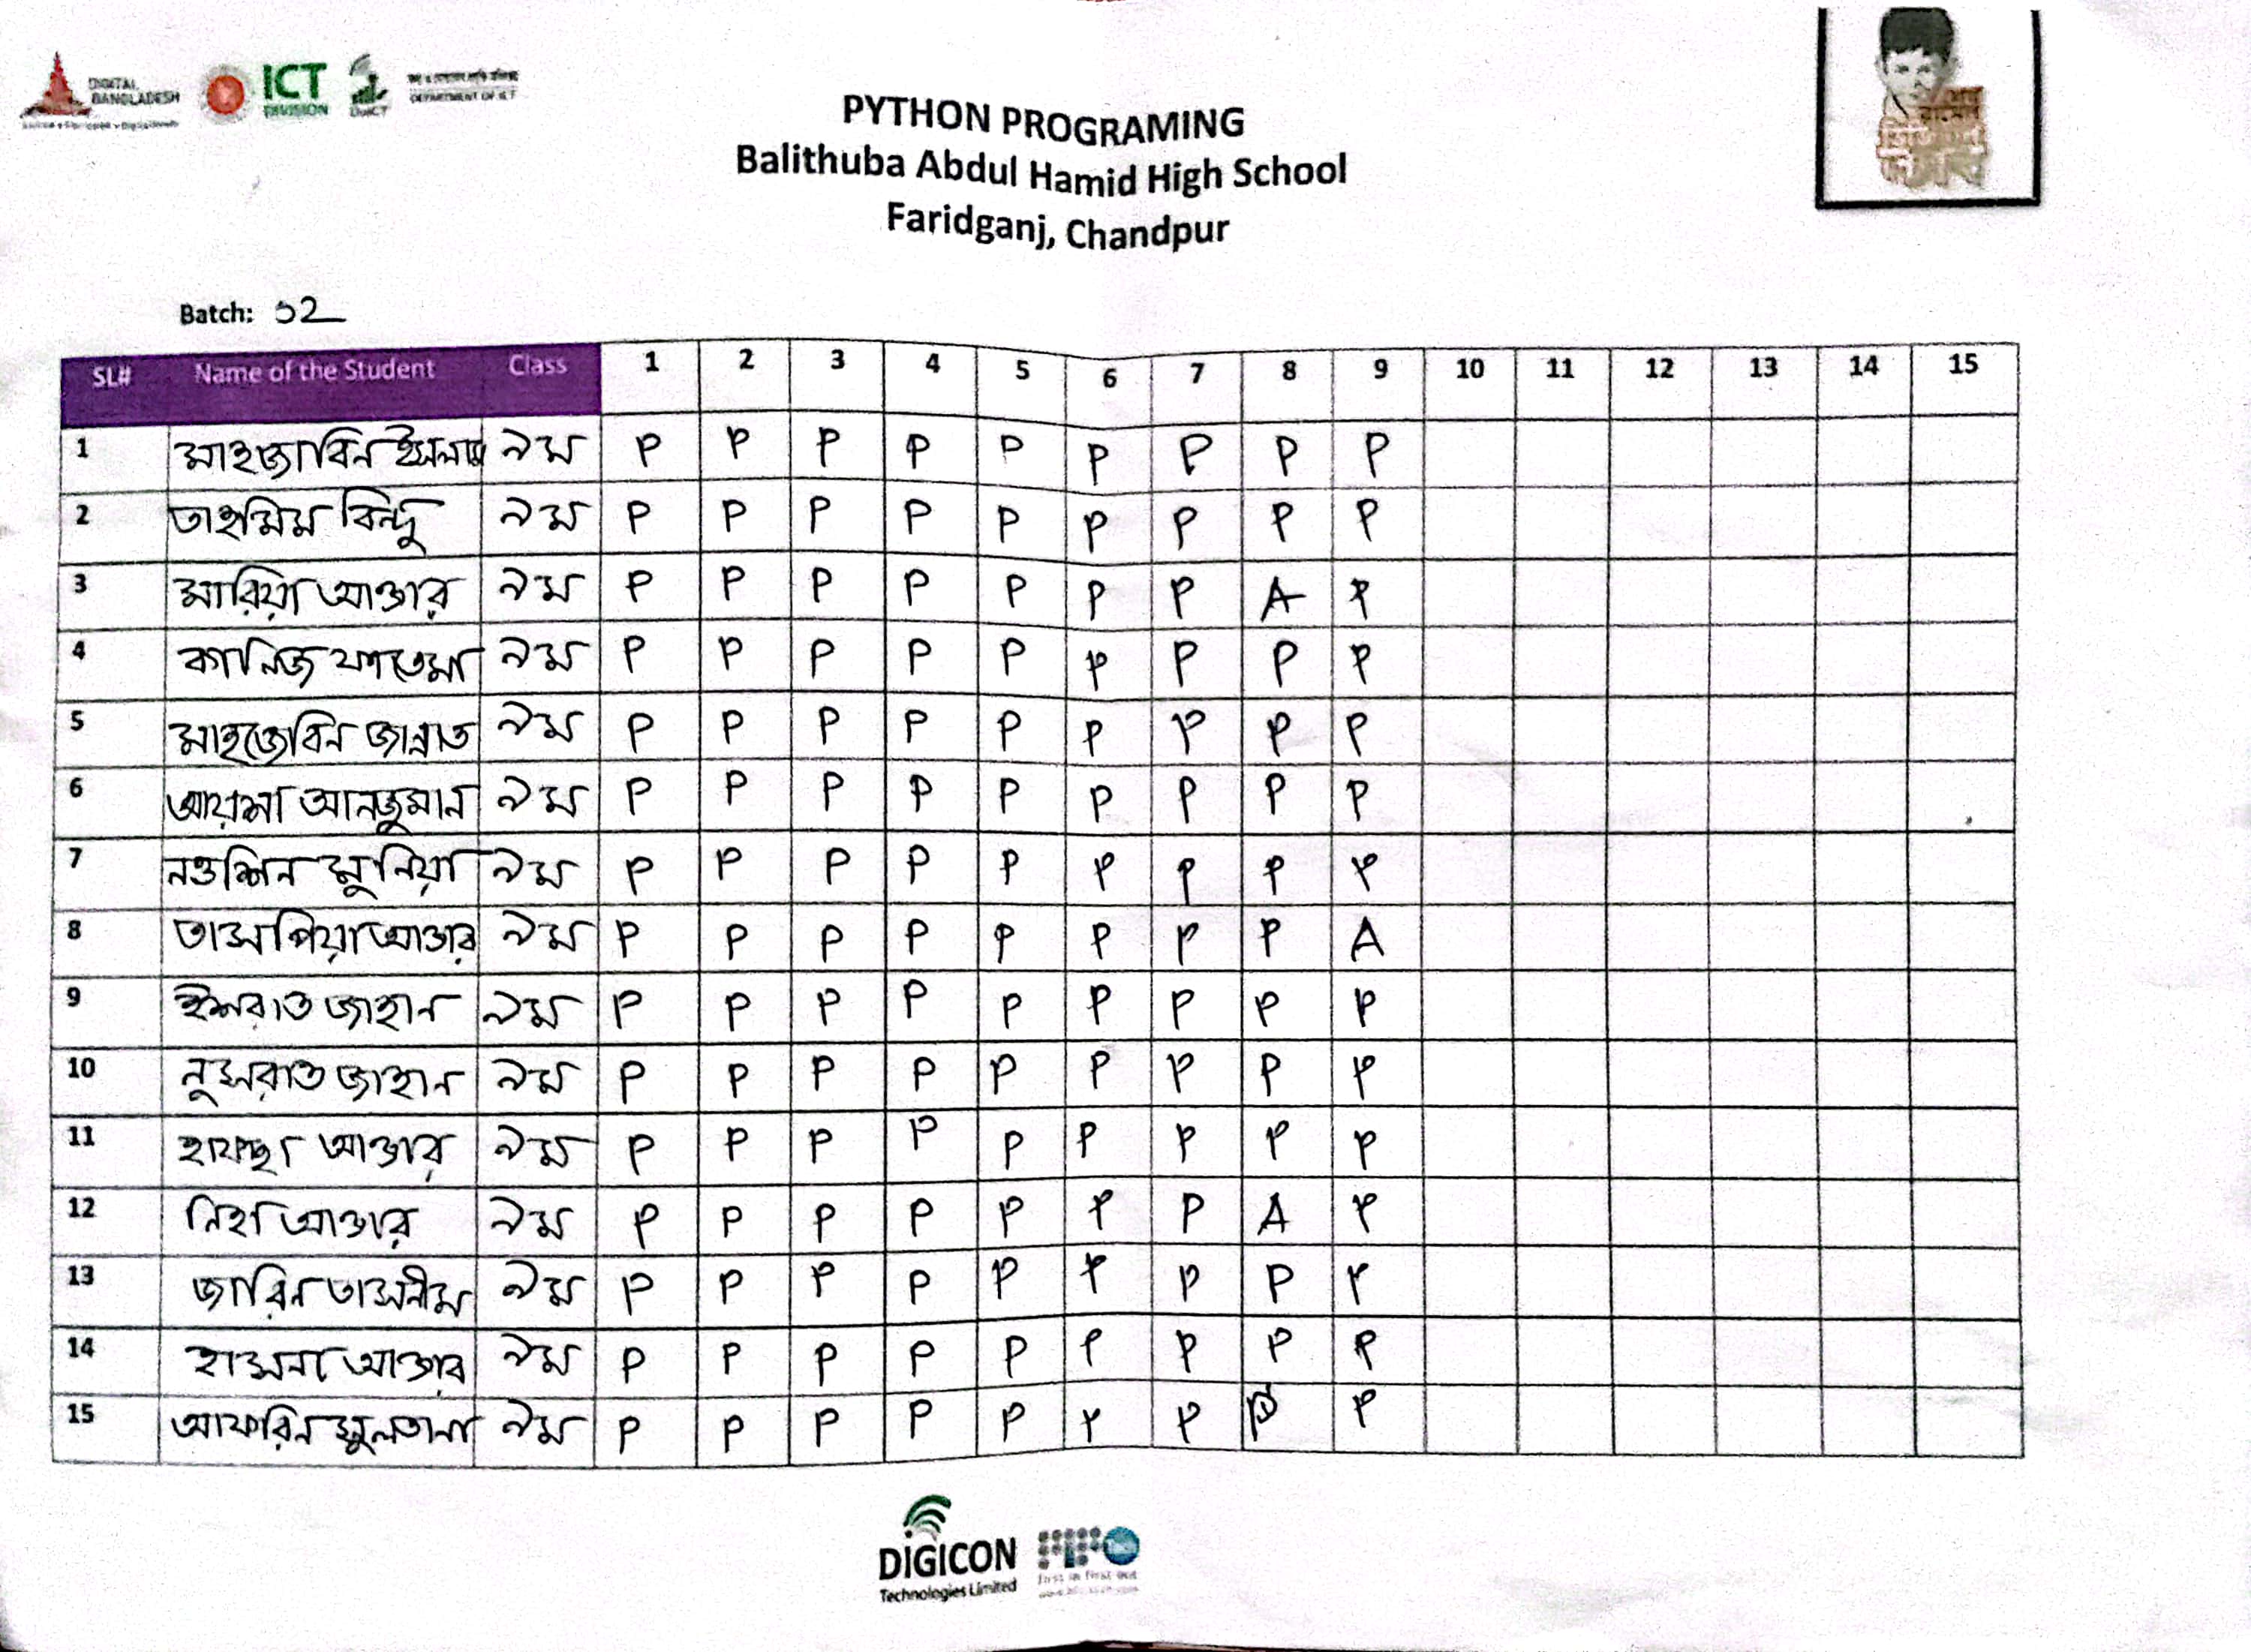 DIGITAL BANGLADESH
ICT DIVISION
DoICT
DEPARTMENT OF ICT
PYTHON PROGRAMING
Balithuba Abdul Hamid High School
Faridganj, Chandpur
Batch: ১২
SL# Name of the Student Class 1 2 3 4 5 6 7 8 9 10 11 12 13 14 15
1 মাহজাবিন ইসলাম ৯ম P P P P P P P P P
2 তাহমিম বিন্দু ৯ম P P P P P P P P P
3 মারিয়া আক্তার ৯ম P P P P P P P A P
4 কানিজ ফাতেমা ৯ম P P P P P P P P P
5 মাহজেবিন জান্নাত ৯ম P P P P P P P P P
6 আয়শা আনজুমান ৯ম P P P P P P P P P
7 নওশিন মুনিয়া ৯ম P P P P P P P P P
8 তাসপিয়া আক্তার ৯ম P P P P P P P P A
9 ইশরাত জাহান ৯ম P P P P P P P P P
10 নুসরাত জাহান ৯ম P P P P P P P P P
11 হাফছা আক্তার ৯ম P P P P P P P P P
12 নিহা আক্তার ৯ম P P P P P P P A P
13 জারিন তাসনীম ৯ম P P P P P P P P P
14 হাসনা আক্তার ৯ম P P P P P P P P P
15 আফরিন সুলতানা ৯ম P P P P P P P P P
DIGICON
Technologies Limited
first in first out